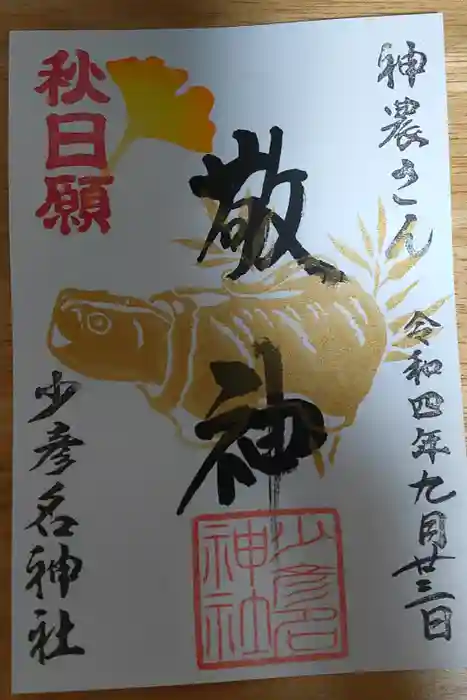 神農さん
令和四年九月廿三日
敬神
少彦名
神社
秋日願
少彦名神社